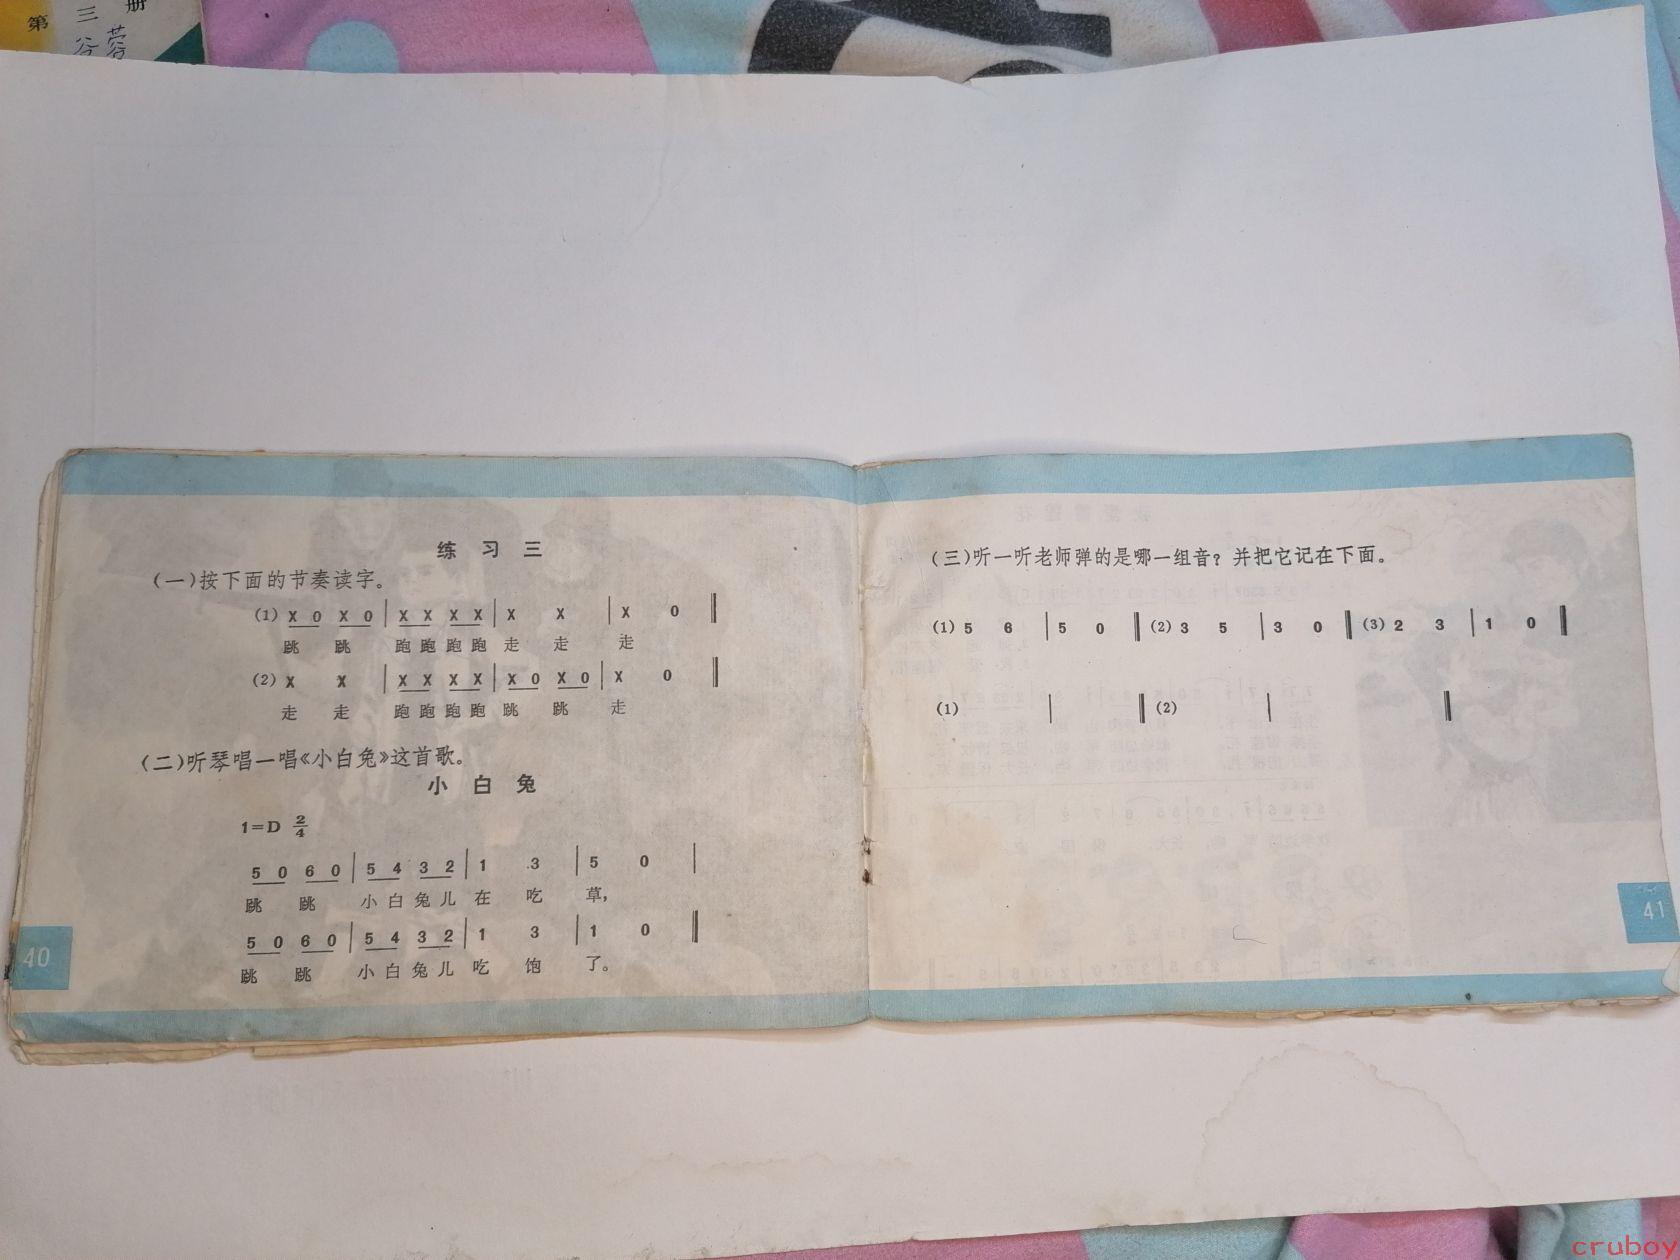 第三册
谷蓉
练习三
(一)按下面的节奏读字。
(1) X 0 X 0 | X X X X | X X | X 0 ‖
跳 跳 跑跑跑跑 走 走 走
(2) X X | X X X X | X 0 X 0 | X 0 ‖
走 走 跑跑跑跑 跳 跳 走
(二)听琴唱一唱《小白兔》这首歌。
小白兔
1=D 2/4
5 0 6 0 | 5 4 3 2 | 1 3 | 5 0 |
跳 跳 小白兔儿 在 吃 草,
5 0 6 0 | 5 4 3 2 | 1 3 | 1 0 ‖
跳 跳 小白兔儿 吃 饱 了。
40
(三)听一听老师弹的是哪一组音?并把它记在下面。
(1) 5 6 | 5 0 ‖ (2) 3 5 | 3 0 ‖ (3) 2 3 | 1 0 ‖
(1) | ‖ (2) | ‖
41
cruboy